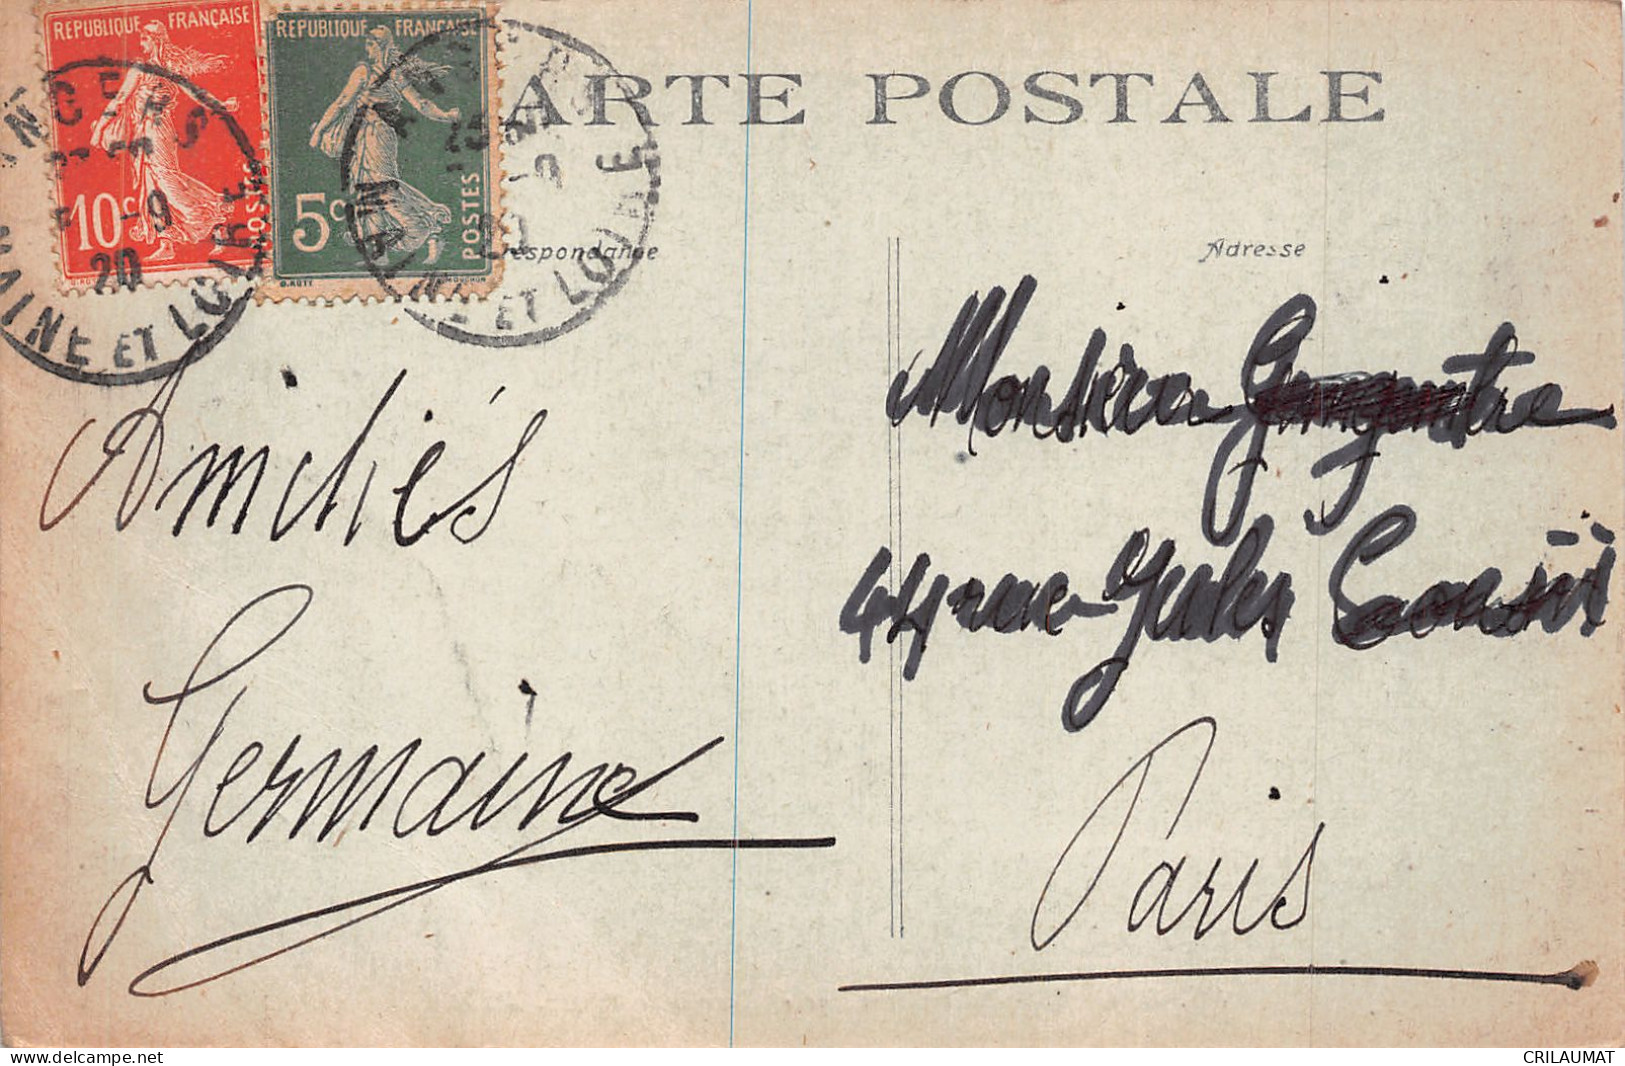 REPUBLIQUE FRANÇAISE
10c POSTES
REPUBLIQUE FRANÇAISE
5c POSTES
ANGERS
5 -9
20
MAINE ET LOIRE
MAINE ET LOIRE
CARTE POSTALE
Correspondance
Adresse
Amitiés
Germaine
Monsieur
44 rue Jules
Paris
delcampe.net
CRILAUMAT